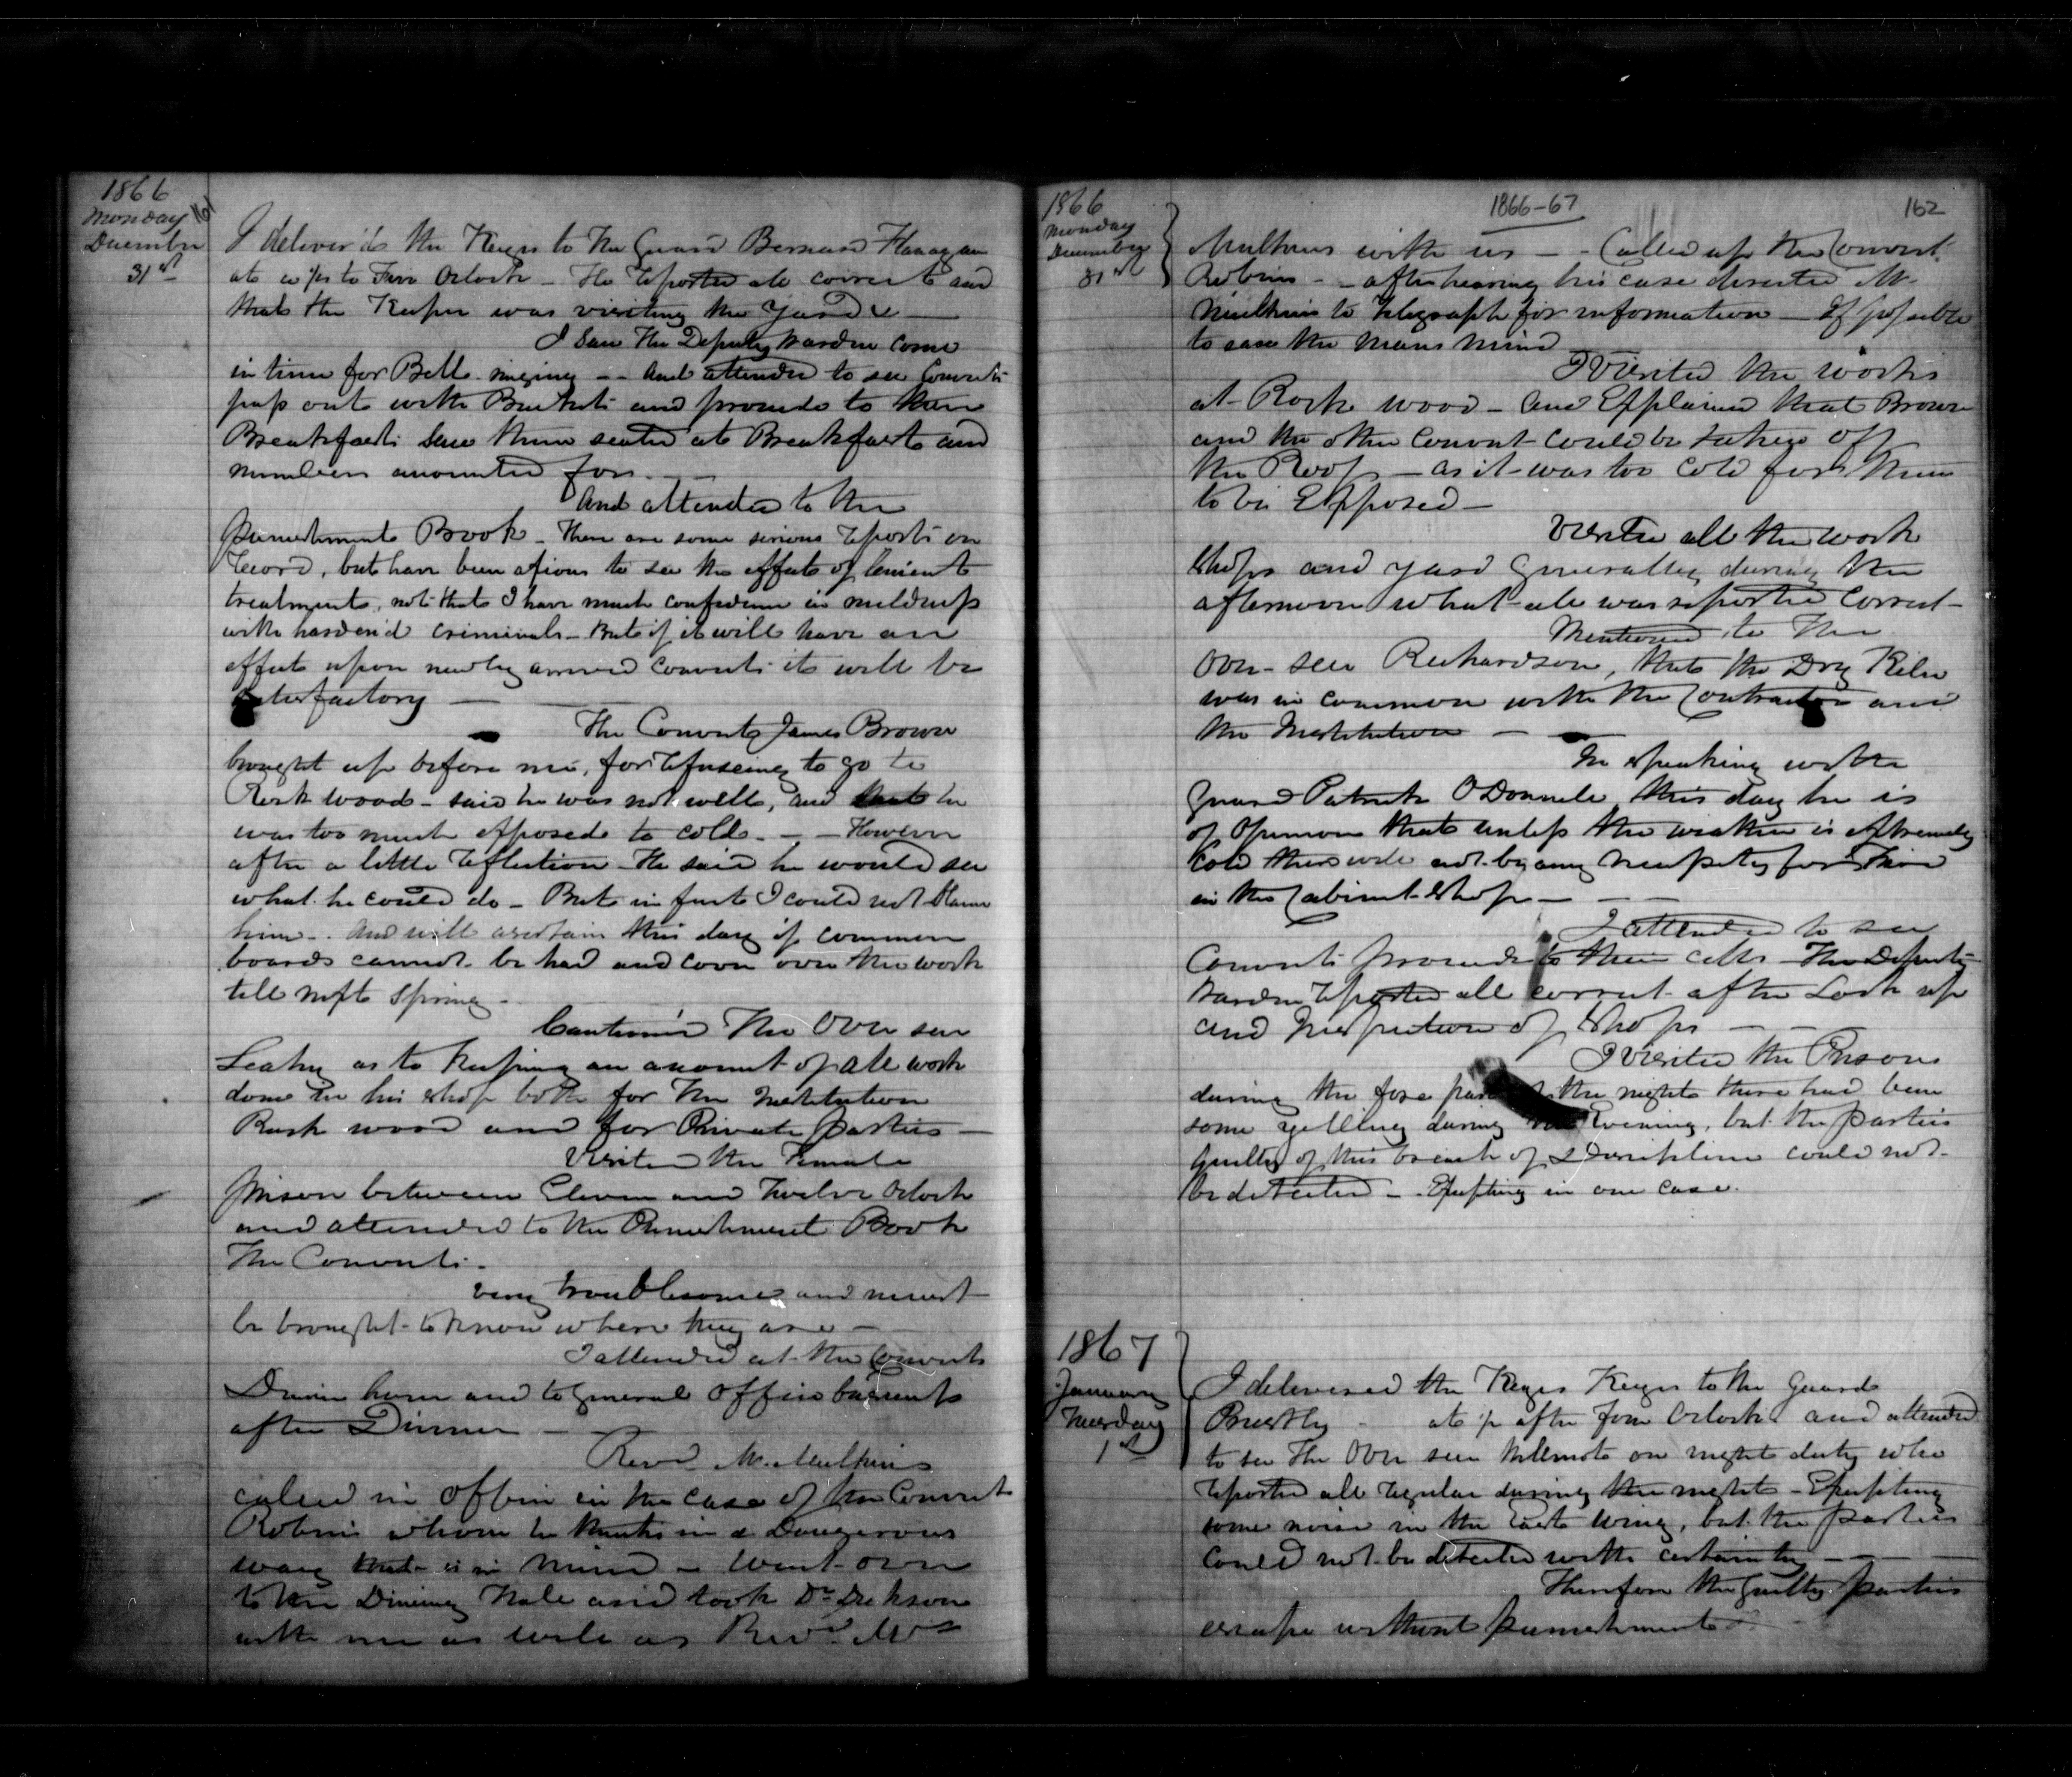 1866
Monday 161
December
31st
I deliver'd the Keys to the Guard Bernard Flanagan
at to Five Oclock - He reported all correct and
that the Keeper was visiting the Yard &c -
I saw the Deputy Warden come
in time for Bell ringing - - And attended to see Convicts
pass out with Buckets and proceed to their
Breakfast. Saw them seated at Breakfast and
numbers accounted for. -
And attended to the
punishment Book - There are some serious reports on
record, but have been anxious to see the effects of lenient
treatment, not that I have much confidence in mildness
with harden'd criminals - But if it will have an
effect upon newly arrived convicts it will be
satisfactory -
The Convict James Brown
brought up before me, for refuseing to go to
Rock wood - said he was not well, and that he
was too much exposed to cold - - However
after a little reflection - He said he would see
what he could do - But in fact I could not blame
him - . And will ascertain this day if common
boards cannot be had and cover over the work
till next Spring -
Caution'd the Over seer
Leahy as to keeping an account of all work
done in his shop both for the Institution
Rock wood and for Private parties -
Visited the Female
prison between Eleven and Twelve Oclock
and attended to the Punishment Book
The Convicts -
very troublesome and must
be brought to know where they are -
I attended at the Convicts
Dinner hour and to general office business
after Dinner -
Revd Mr. Mulkins
called in office in the case of the Convict
Robins whom he thinks in a Dangerous
way that is in mind - Went over
to the Dining Hall and took Dr Dickson
with me as well as Revd Mr
1866
Monday
December
31st
1866-67
162
Mulkins with us - - Called up the Convict
Robins - - after hearing his case directed Mr
Mulkins to Telegraph for information - If possible
to ease the mans mind
I Visited the works
at Rock wood - And Explained that Brown
and the other convict could be taken off
the Roof - as it was too cold for them
to be Exposed -
Visited all the work
shops and yard generally during the
afternoon what all was reported correct -
Mentioned to the
Over-seer Richardson, that the Dry Kiln
was in common with the Contractor and
the Institution -
In speaking with
Guard Patrick O Donnell this day he is
of Opinion that unless the weather is extremely
cold there will not be any necessity for fire
in the Cabinet Shop - - -
I attended to see
Convicts proceed to their cells - The Deputy
Warden reported all correct after Lock up
and Inspection of Shops - -
I Visited the Prisons
during the fore part of the night there had been
some yelling during the Evening, but the parties
guilty of this breach of Discipline could not
be detected - . Excepting in one case.
1867
January
Tuesday
1st
I delivered the Keyes Keyes to the Guard
Priestly - at after four Oclock and attended
to see the Over seer on night duty who
reported all regular during the night - Excepting
some noise in the East wing, but the parties
could not be detected with certainty - -
Therefore the guilty parties
escape without punishment